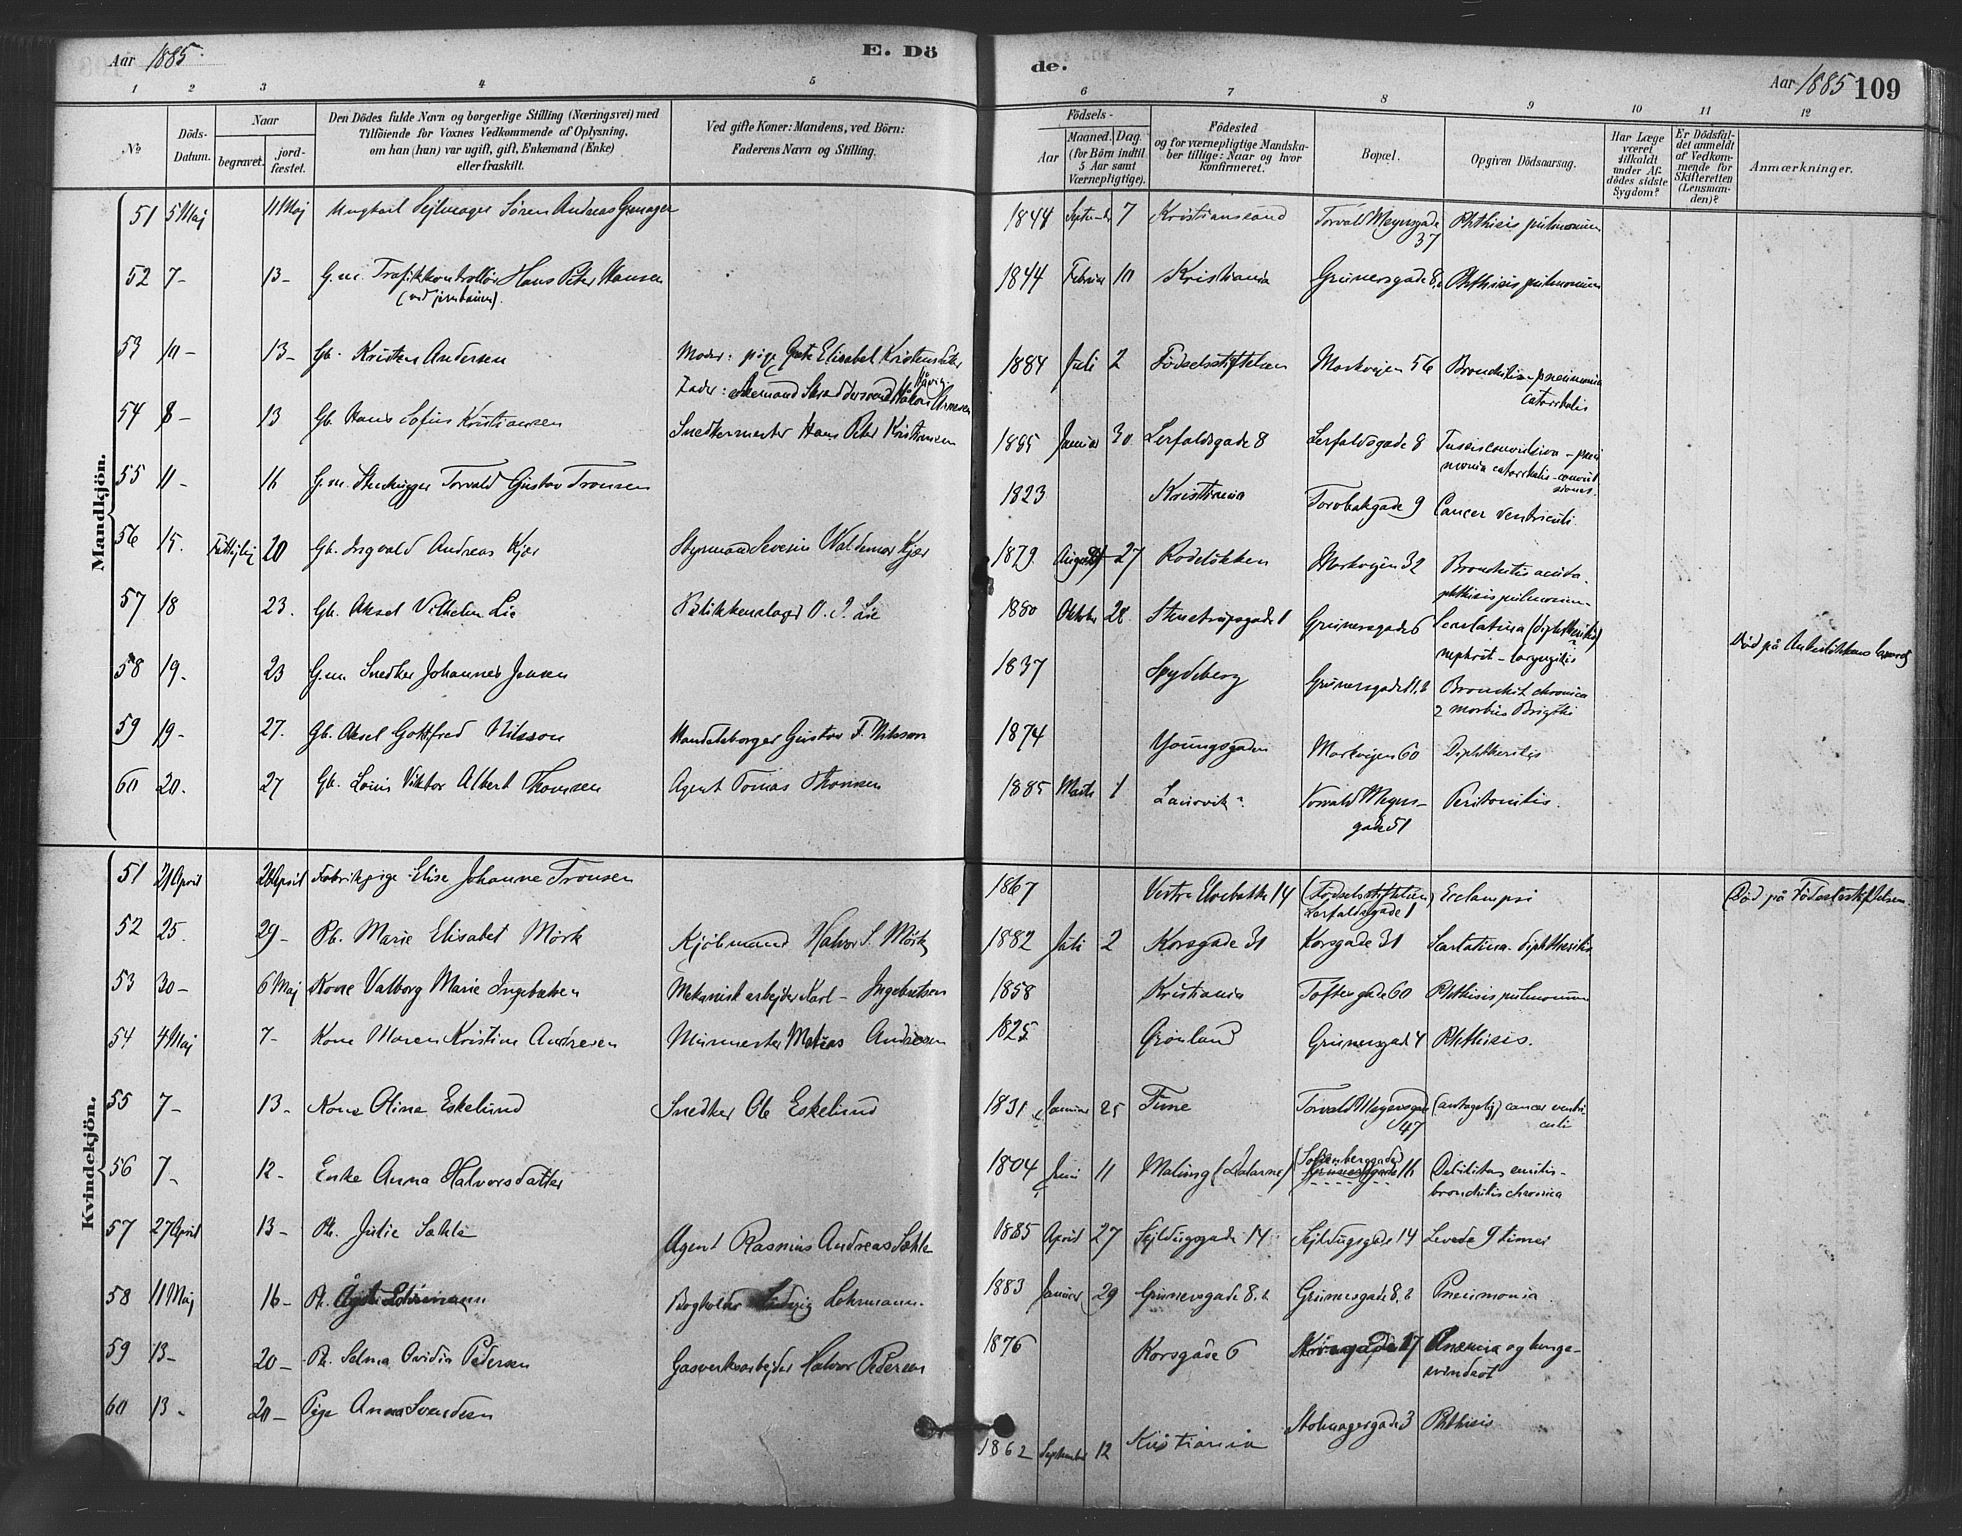 Aar 1885.
E. Dö
de.
Aar 1885 109
1 2 3 4 5 6 7 8 9 10 11 12
No
Döds-Datum.
Naar
begravet.
jord-fæstet.
Den Dödes fulde Navn og borgerlige Stilling (Næringsvei) med
Tilföiende for Voxnes Vedkommende af Oplysning,
om han (hun) var ugift, gift, Enkemand (Enke)
eller fraskilt.
Ved gifte Koner: Mandens, ved Börn:
Faderens Navn og Stilling.
Födsels-
Aar
Maaned. Dag.
(for Börn indtil
5 Aar samt
Værnepligtige).
Födested
og for værnepligtige Mandska-
ber tillige: Naar og hvor
konfirmeret.
Bopæl.
Opgiven Dödsaarsag.
Har Læge
været
tilkaldt
under Af-
dödes sidste
Sygdom?
Er Dödsfal-
det anmeldt
af Vedkom-
mende for
Skifteretten
(Lensman-
den)?
Anmærkninger.
Mandkjön.
51 5 Maj 11 Maj Ungkarl Sejlmager Sören Andreas 1844 7 Kristianssand Torvald Meyersgade 37 Phthisis pulmonum
52 7- 13- G.m. Trafikkontrollör Hans Peter Hansen 1844 Februar 10 Kristiania Grünersgade 8, Phthisis pulmonum
(ved jernbanen).
53 10- 13- Gb. Kristen Andersen Moder: pige Elisabet Kristensdatter 1884 Juli 2 Födselsstiftelsen Markvejen 56 Bronchitis pneumonia catarrhalis
Fader:
54 8- 13 Gb. Hans Sofus Kristiansen Snedkermester Hans Peter Kristiansen 1885 Januar 30 Lerfaldsgade 8 Lerfaldsgade 8 Tussis convulsiva - pneumonia catarrhalis - convulsiones.
55 11- 16 G.m. Torvald Gustav Tronsen 1823 Kristiania 9 Cancer ventriculi.
56 15. 20 Gb. Ingvald Andreas Kjær Styrmand Severin Valdemar Kjær 1879. August 27 Rodelökken Markvejen 32 Bronchitis acuta. phthisis pulmonum.
57 18 23. Gb. Aksel Vilhelm Lie Blikkenslager O. J. Lie 1880 Oktober 28 Stenstrupsgade 1 Grünersgade 6 Scarlatina (diphtheritis) nephrit - laryngitis
58 19. 23 G.m. Snedker Johannes Jensen 1837 Spydeberg Grünersgade 11, 2 Bronchit. chronica & morbus Brigthi Död på
59 19- 27. Gb. Aksel Gottfred Nilsson Handelsborger Gustav F. Nilsson 1874 Youngsgaden Markvejen 60 Diphtheritis
60 20. 27 Gb. Louis Viktor Albert Thomsen Agent Tomas Thomsen 1885 Marts 1 Laurvik. Torvald Meyers-gade 51 Peritonitis.
Kvindekjön.
51 21 April 28 April Fabrikpige Elise Johanne Tronsen 1867 Vestre Elvebakke 14 (Födselsstiftelsen) Lerfaldsgade 1 Eclampsi Död på Födselsstiftelsen.
52 25. 29- Pb. Marie Elisabet Mörk Kjöbmand Halvor S. Mörk 1882 Juli 2 Korsgade 31 Korsgade 31 Scarlatina. diphtheritis
53 30- 6 Maj Kone Valborg Marie Ingebretsen Mekanisk arbejder Karl - Ingebretsen 1858 Kristiania Toftesgade 60 Phthisis pulmonum
54 4 Maj 7- Kone Maren Kristine Andresen Murmester Matias Andresen 1825 Grönland Grünersgade 4 Phthisis.
55 7- 13- Kone Oline Eskelund Snedker Ole Eskelund 1831 Januar 25 Tune Torvald Meyersgade 47 (antagelig) cancer ventriculi
56 7- 12- Enke Anna Halvorsdatter 1804 Juni 11 Malung (Dalarne) Sofienberggade 16 Debilitas senilis - bronchitis chronica
57 27 April 13- Pb. Julie Sæhle Agent Rasmus Andreas Sæhle 1885 April 27 Sejldugsgade 14 Sejldugsgade 14 Levede 9 timer
58 11 Maj 16- Pb. Lehrmann Bogholder Ludvig Lehrmann. 1883 Januar 29 Grünersgade 8, 2 Grünersgade 8, 2 Pneumonia.
59 13- 20- Pb. Selma Ovidia Pedersen Gasverksarbejder Halvor Pedersen 1876 Korsgade 6 17 Anæmia og hungersvindsot
60 13- 20- Pige Anna Svendsen 1862 September 12 Kristiania 3 Phthisis